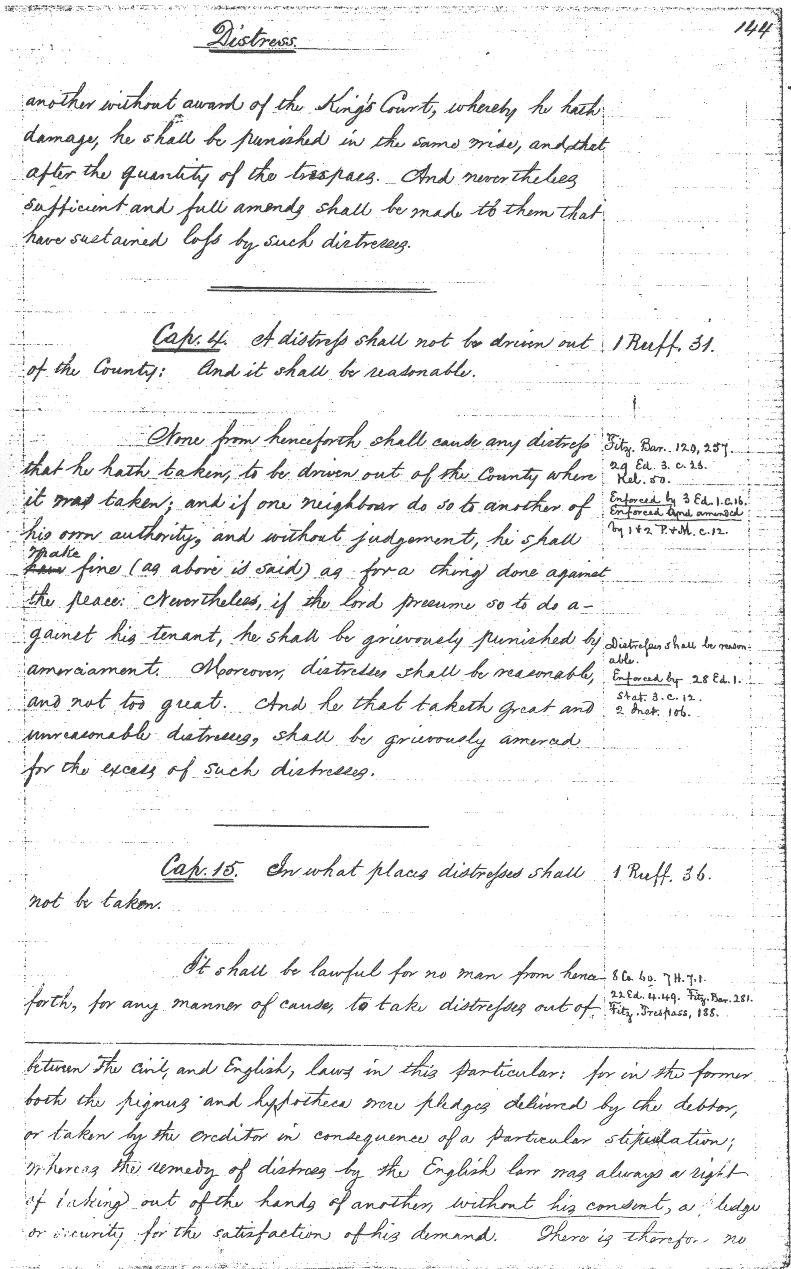 Distress.
144
another without award of the King's Court, whereby he hath
damage, he shall be punished in the same wise, and that
after the quantity of the trespass. And nevertheless
sufficient and full amends shall be made to them that
have sustained loss by such distresses.
Cap. 4. A distress shall not be driven out
of the County: And it shall be reasonable.
1 Ruff. 31.
None from henceforth shall cause any distress
that he hath taken, to be driven out of the County where
it was taken; and if one neighbour do so to another of
his own authority, and without judgement, he shall
make
fine (as above is said) as for a thing done against
the peace: Nevertheless, if the lord presume so to do a-
gainst his tenant, he shall be grievously punished by
amerciament. Moreover, distresses shall be reasonable,
and not too great. And he that taketh great and
unreasonable distresses, shall be grievously amerced
for the excess of such distresses.
Fitz. Bar. 120, 257.
29 Ed. 3. c. 23.
Kel. 50.
Enforced by 3 Ed. 1. c. 16.
Enforced and amended
by 1 & 2 P. & M. c. 12.
Distresses shall be reason-
able.
Enforced by 28 Ed. 1.
Stat. 3. c. 12.
2 Inst. 106.
Cap. 15. In what places distresses shall
not be taken.
1 Ruff. 36.
It shall be lawful for no man from hence-
forth, for any manner of cause, to take distresses out of
8 Co. 60. 7 H. 7. 1.
22 Ed. 4. 49. Fitz. Bar. 281.
Fitz. Trespass, 185.
between the civil, and English, laws in this particular: for in the former
both the pignus and hypotheca were pledges delivered by the debtor,
or taken by the creditor in consequence of a particular stipulation;
whereas the remedy of distress by the English law was always a right
of taking out of the hands of another, without his consent, a ledge
or security for the satisfaction of his demand. There is therefore no